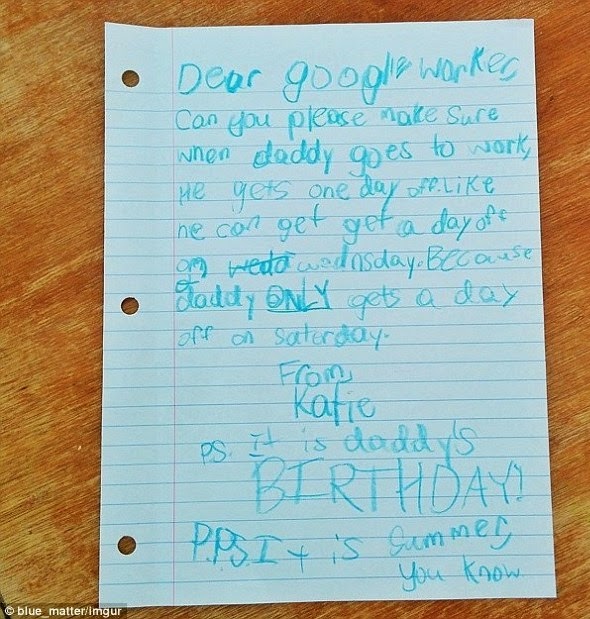 Dear google worker,
Can you please make sure
when daddy goes to work,
He gets one day off. Like
he can get get a day off
on wedd wednsday. BECause
daddy ONLY gets a day
off on saturday.
From,
Katie
PS. It is daddy's
BIRTHDAY!
P.P.S. It is summer,
you know
© blue_matter/Imgur